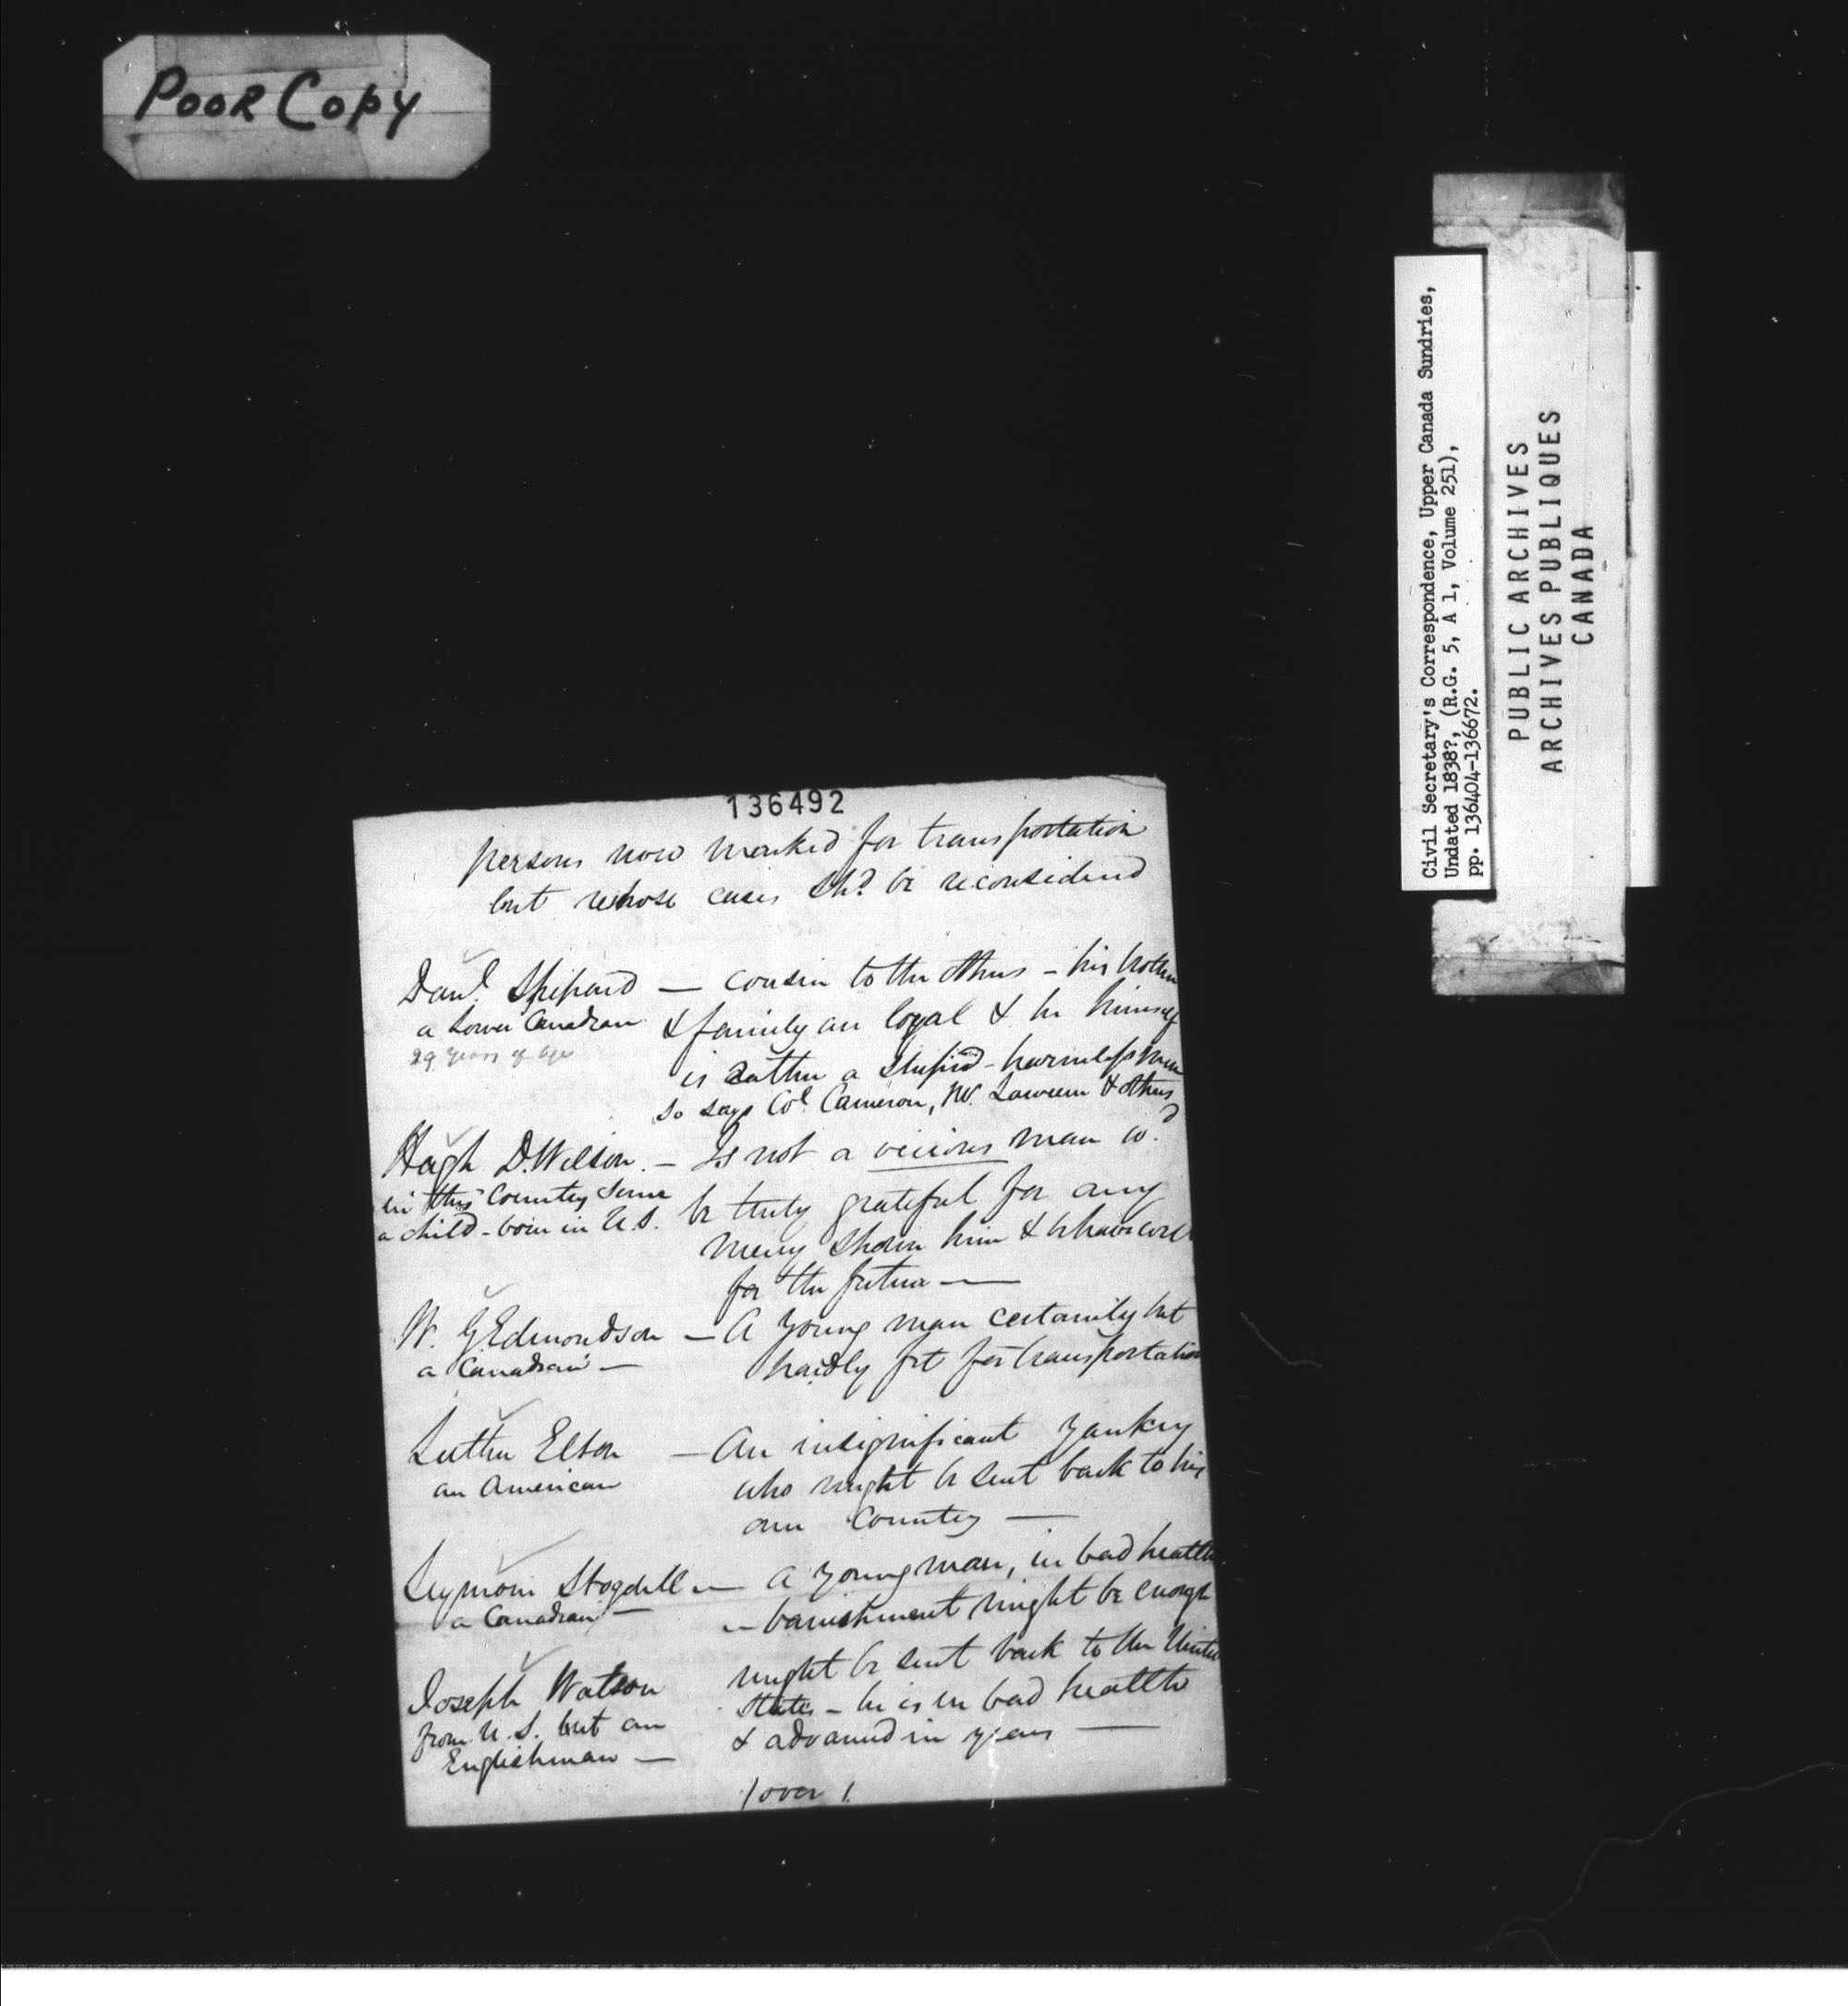 POOR COPY
Civil Secretary's Correspondence, Upper Canada Sundries,
Undated 1838?, (R.G. 5, A 1, Volume 251),
pp. 136404-136672.
PUBLIC ARCHIVES
ARCHIVES PUBLIQUES
CANADA
136492
persons now marked for transportation
but whose cases shd be reconsidered
Danl. Shepard — cousin to the others - his brother
a Lower Canadian
29 years of age
& family are loyal & he himself
is rather a stupid - harmless man
so says Col Cameron, Mr. & others
Hugh D. Wilson. — Is not a vicious man wd
in this Country since
a child - born in U.S.
be truly grateful for any
mercy shown him & behave well
for the future —
W. G. Edmondson — A young man certainly but
a Canadian —
hardly fit for transportation
Luther Elton — An insignificant Yankey
an American
who might be sent back to his
own Country —
Seymour Stogdill — A young man, in bad health
a Canadian —
— banishment might be enough
Joseph Watson
from U.S. but an
Englishman —
might be sent back to the United
States - he is in bad health
& advanced in years —
/over/